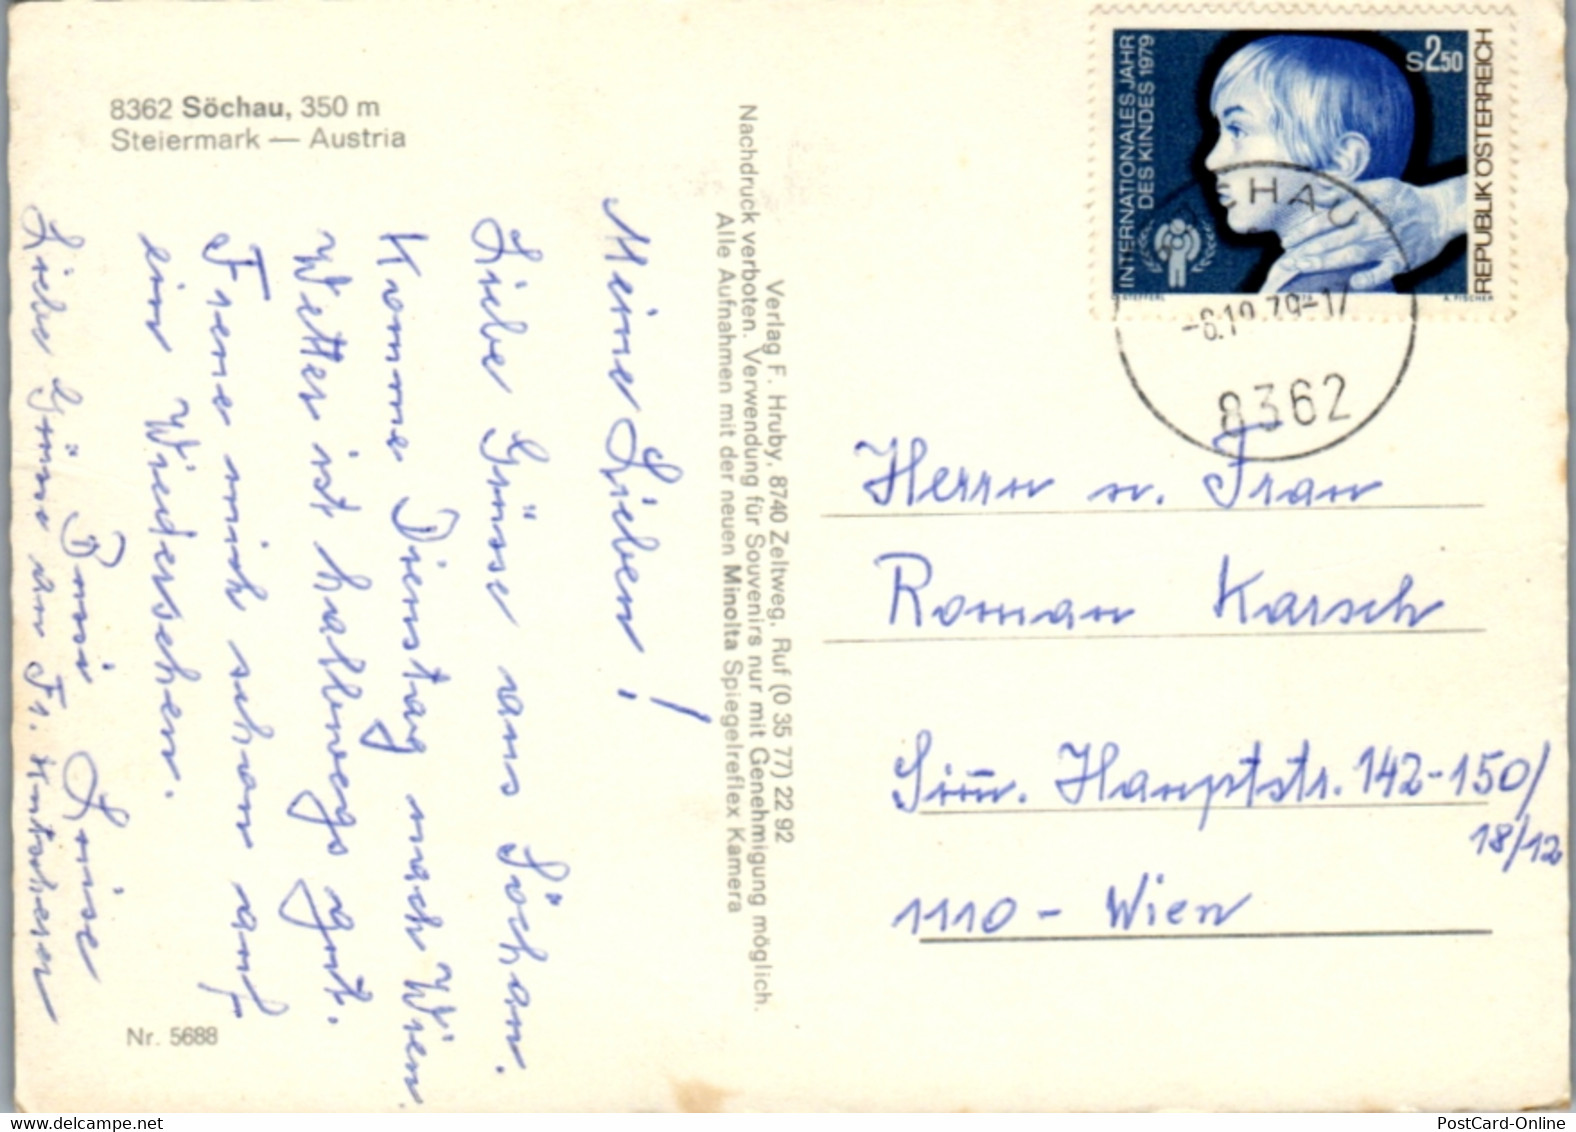 8362 Söchau, 350 m
Steiermark — Austria
Meine Lieben!
Liebe Grüsse aus Söchau.
Komme Dienstag nach Wien.
Wetter ist halbwegs gut.
Freue mich schon auf
ein Wiedersehen.
Bussi Luise
Liebe Grüsse an Fr. Kutscherer
Nr. 5688
Verlag F. Hruby, 8740 Zeltweg. Ruf (0 35 77) 22 92
Nachdruck verboten. Verwendung für Souvenirs nur mit Genehmigung möglich.
Alle Aufnahmen mit der neuen Minolta Spiegelreflex Kamera
INTERNATIONALES JAHR
DES KINDES 1979
S2.50
REPUBLIK ÖSTERREICH
STEFFERL
A. FISCHER
8362
Herrn u. Frau
Roman Karsch
Sim. Hauptstr. 142-150/
18/12
1110 - Wien
PostCard-Online
www.delcampe.net